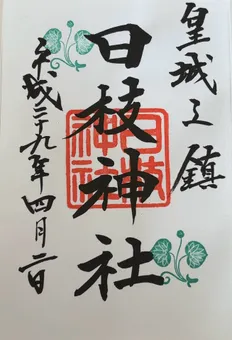 皇城之鎮
日枝神社
日枝神社
平成二十九年四月二日